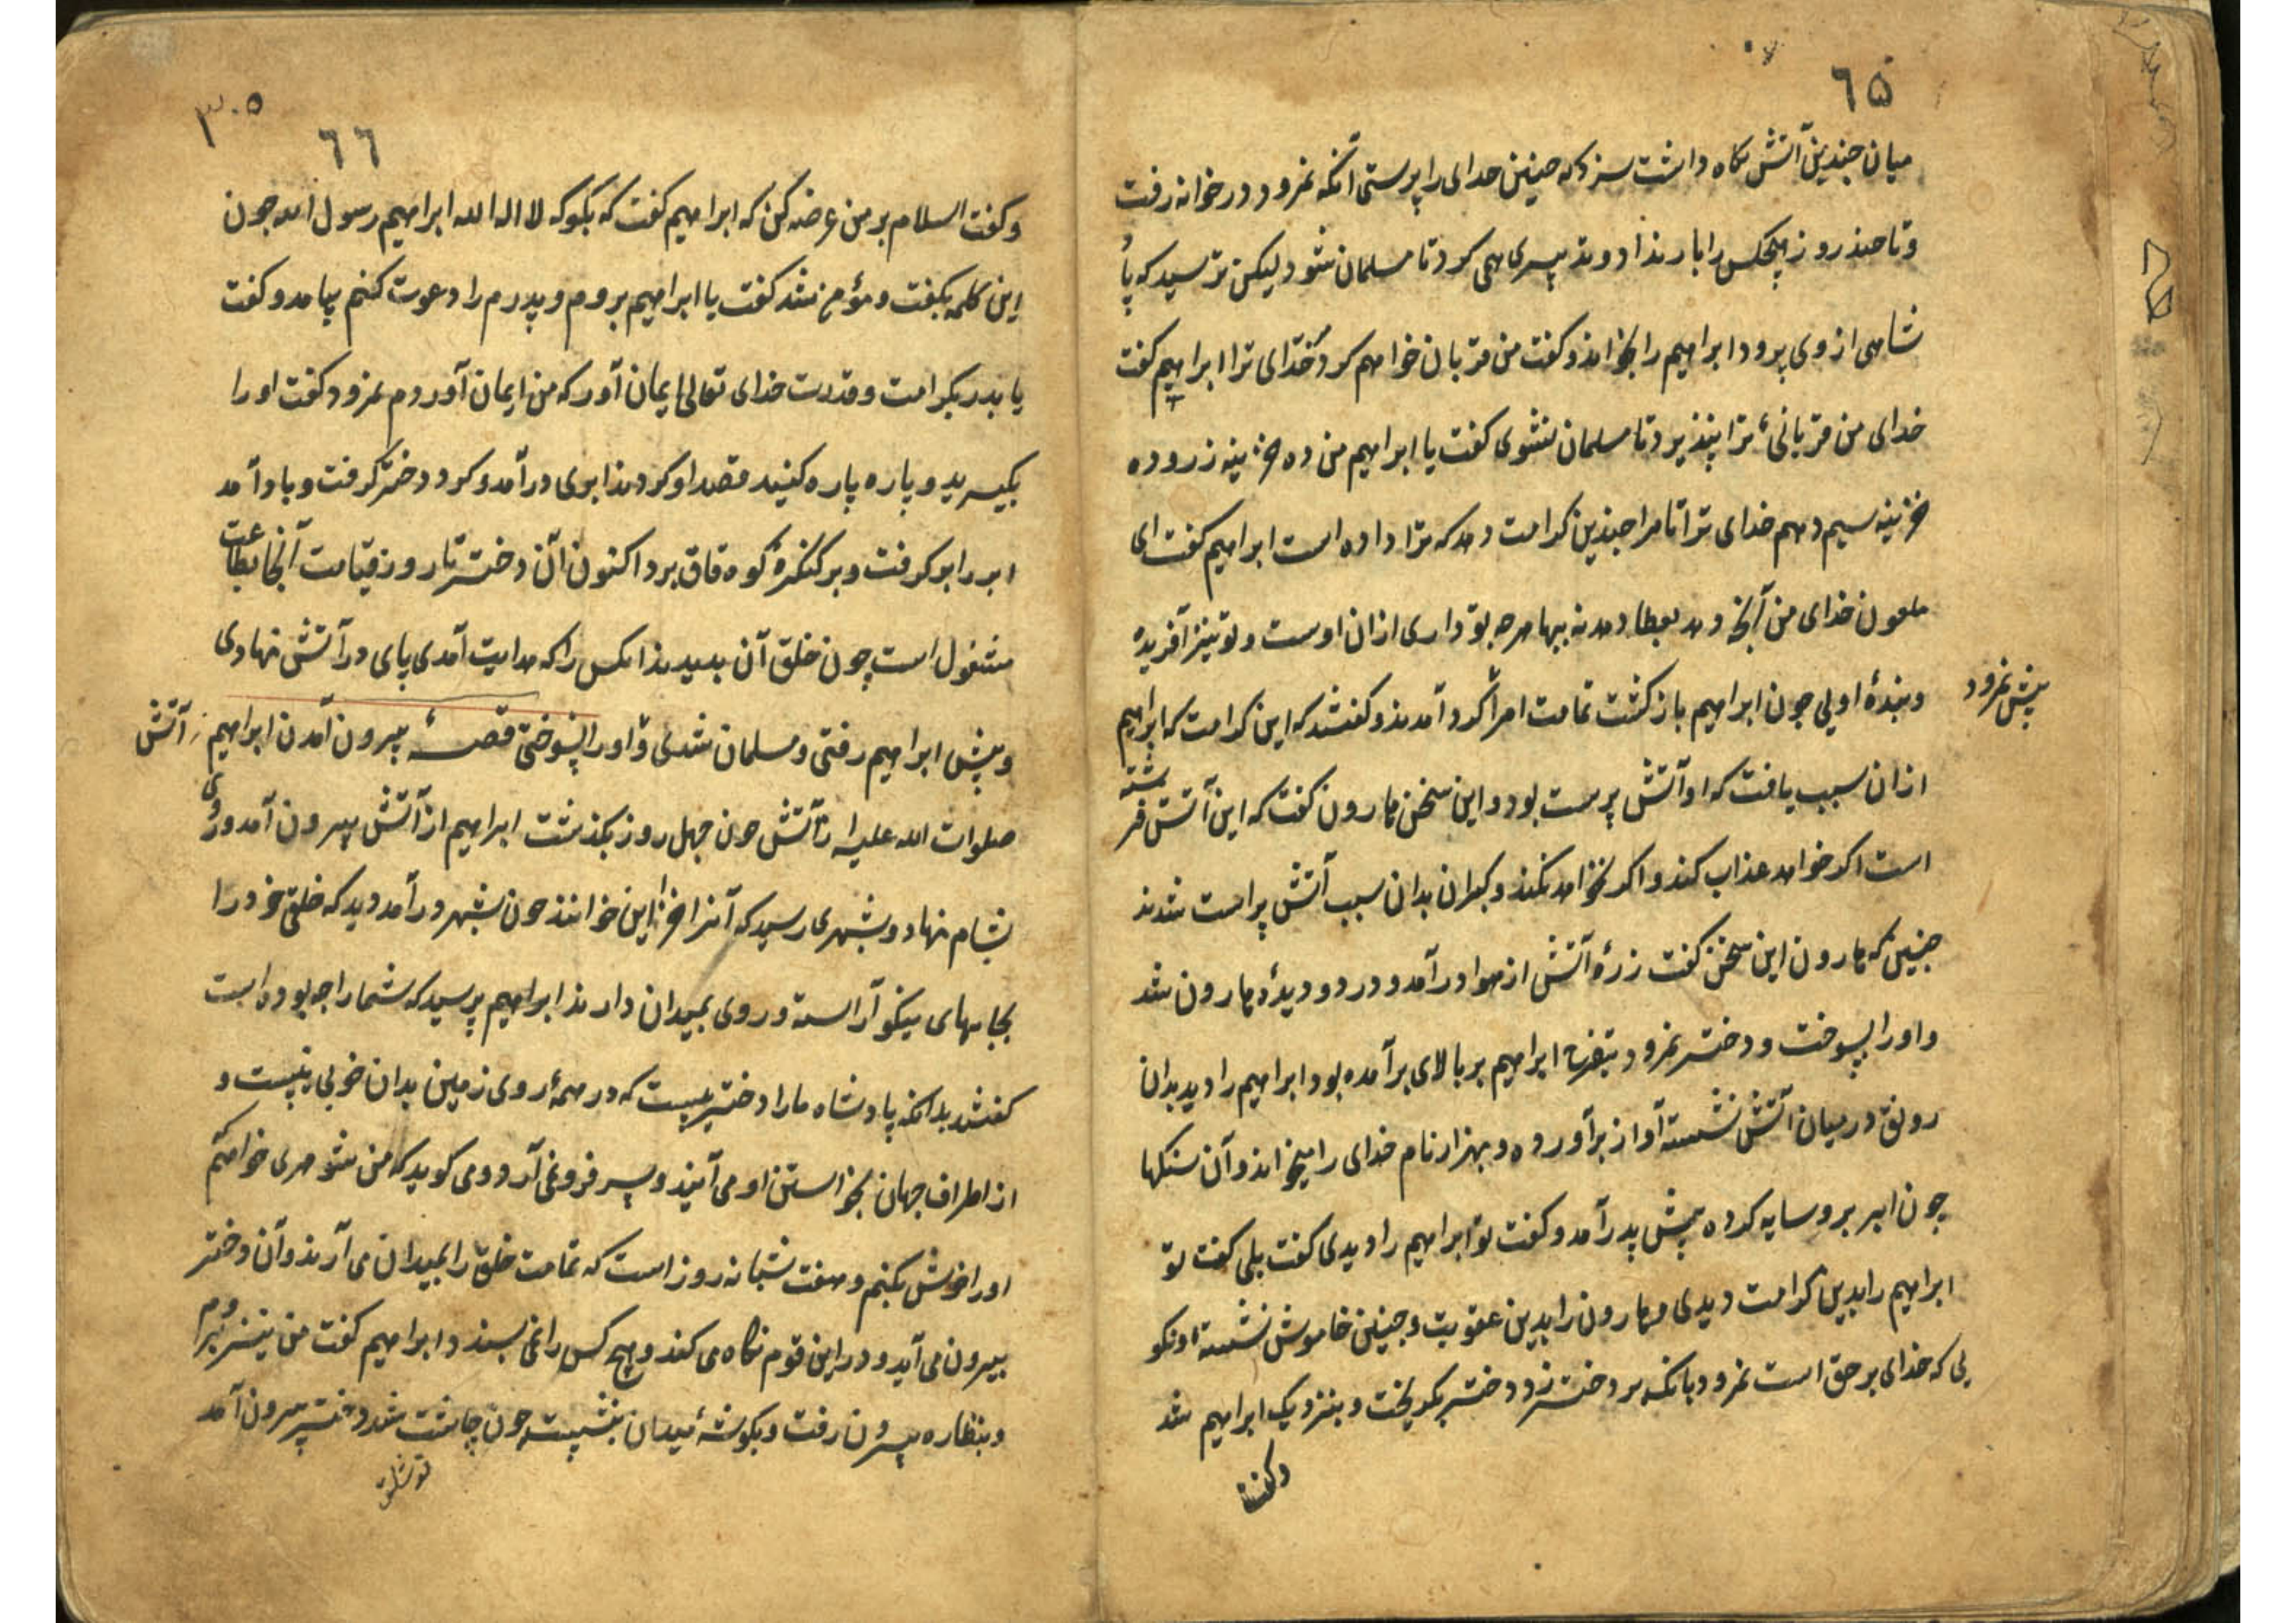 ٦٥
میان جندین آتش نکاه داشت سزد که جنین خدای را پرستی آنکه نمرود در خانه رفت
و تا جند روز هیچکس را بار نداد و تدبیر می کرد تا مسلمان شود لیکن ترسید که پا
شاهی از وی برود ابراهیم را بخواند و کفت من قربان خواهم کرد خدای ترا ابراهیم کفت
خدای من قربانیٔ ترا نپذیرد تا مسلمان نشوی کفت یا ابراهیم من ده خزینه زر و ده
خزینه سیم دهم خدای ترا تا مرا جندین کرامت دهد که ترا داده است ابراهیم کفت ای
ملعون خدای من آنچه دهد بعطا دهد نه ببها هرجه تو داری ازان اوست و تو نیز آفریدهٔ
و بندهٔ اویی جون ابراهیم باز کشت تمامت امرا کرد آمدند و کفتند که این کرامت که ابراهیم
پیش نمرود
ازان سبب یافت که او آتش پرست بود و این سخن هارون کفت که این آتش فرشته
است اکر خواهد عذاب کند و اکر نخواهد نکند و کبران بدان سبب آتش پراست شدند
جنین که هارون این سخن کفت زرهٔ آتش از هوا درآمد و در دو دیدهٔ هارون شد
و او را بسوخت و دختر نمرود بتفرج ابراهیم بر بالای برآمده بود ابراهیم را دید بدان
رونق در میان آتش نشسته آواز برآورده و بهزار نام خدای را میخواند و آن سنکها
چون ابر برو سایه کرده پیش پدر آمد و کفت تو ابراهیم را دیدی کفت بلی کفت تو
ابراهیم را بدین کرامت دیدی و هارون را بدین عقوبت و جنین خاموش نشسته او نکو
یی که خدای بر حق است نمرود بانک بر دختر زد دختر بکریخت و بنزدیک ابراهیم شد
و کفت
٣٠٥
٦٦
و کفت اسلام بر من عرضه کن که ابراهیم کفت که بکو که لا اله الا الله ابراهیم رسول الله جون
این کلمه بکفت و مؤمن شد کفت یا ابراهیم بروم و پدرم را دعوت کنم بیامد و کفت
یا پدر بکرامت و قدرت خدای تعالی ایمان آور که من ایمان آوردم نمرود کفت او را
بکیرید و پاره پاره کنید قصد او کردند ابری درآمد و کرد دختر کرفت و باد آمد
ابر را بر کرفت و بر کنکرهٔ کوه قاف برد اکنون آن دختر تا روز قیامت آنجا بطاعت
مشغول است چون خلق آن بدیدند انکس را که هدایت آمدی پای در آتش نهادی
و پیش ابراهیم رفتی و مسلمان شدی و او را نسوختی قصهٔ بیرون آمدن ابراهیم از آتش
صلوات الله علیه از آتش جون جهل روز بکذشت ابراهیم از آتش بیرون آمد و روی
بشام نهاد و بشهری رسید که آنرا خزاین خوانند جون بشهر درآمد دید که خلق خود را
بجامهای نیکو آراسته و روی بمیدان دارند ابراهیم پرسید که شما را جه بوده است
کفتند بدانکه پادشاه ما را دختریست که در همهٔ روی زمین بدان خوبی نیست و
از اطراف جهان بخواستن او می آیند و سر فرو نمی آرد و می کوید که من شوهری خواهم که
او را خوش بکنم و هفت شبانه روز است که تمامت خلق را بمیدان می آرند و آن دختر
بیرون می آید و در این قوم نکاه می کند و هیچ کس را نمی پسندد ابراهیم کفت من نیز بروم
و بنظاره بیرون رفت و بکوشهٔ میدان بنشست جون چاشت شد دختر بیرون آمد